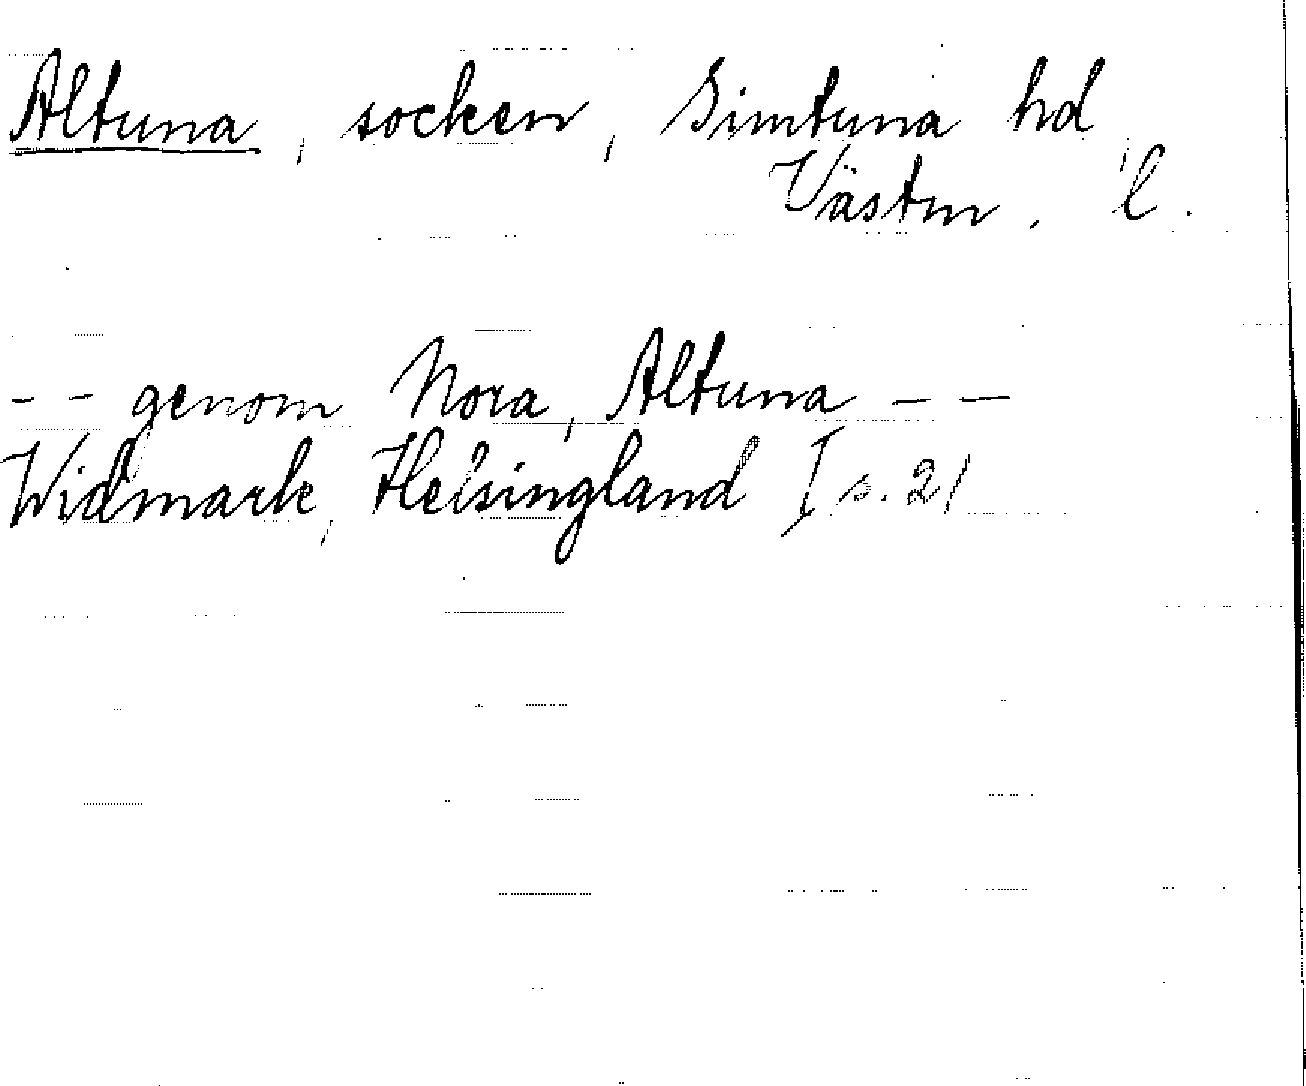 Altuna, socken, Simtuna hd,
Västm. l.
- - genom Nora, Altuna - -
Widmark, Helsingland I s. 21